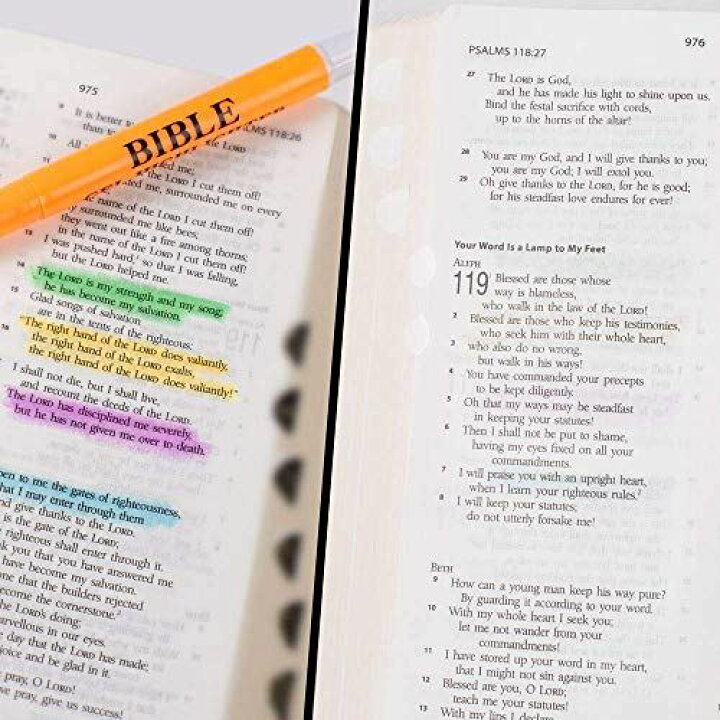 975
BIBLE
PSALMS 118:26
It is better to
than to
All
LORD I cut them off!
surrounded me, surrounded me on every
name of the LORD I cut them off!
surrounded me like bees;
they went out like a fire among thorns;
in the name of the LORD I cut them off!
13 I was pushed hard, so that I was falling,
but the LORD helped me.
14 The LORD is my strength and my song;
he has become my salvation.
15 Glad songs of salvation
are in the tents of the righteous:
16 "The right hand of the LORD does valiantly,
the right hand of the LORD exalts,
the right hand of the LORD does valiantly!"
I shall not die, but I shall live,
and recount the deeds of the LORD.
The LORD has disciplined me severely,
but he has not given me over to death.
pen to me the gates of righteousness,
hat I may enter through them
nd give thanks to the LORD.
is the gate of the LORD;
righteous shall enter through it.
k you that you have answered me
have become my salvation.
one that the builders rejected
ecome the cornerstone.2
the LORD's doing;
marvellous in our eyes.
e day that the LORD has made;
joice and be glad in it.
pray, O LORD!
we pray, give us success!
976
PSALMS 118:27
27 The LORD is God,
and he has made his light to shine upon us.
Bind the festal sacrifice with cords,
up to the horns of the altar!
28 You are my God, and I will give thanks to you;
you are my God; I will extol you.
29 Oh give thanks to the LORD, for he is good;
for his steadfast love endures for ever!
Your Word Is a Lamp to My Feet
ALEPH
119 Blessed are those whose
way is blameless,
who walk in the law of the LORD!
2 Blessed are those who keep his testimonies,
who seek him with their whole heart,
3 who also do no wrong,
but walk in his ways!
4 You have commanded your precepts
to be kept diligently.
5 Oh that my ways may be steadfast
in keeping your statutes!
6 Then I shall not be put to shame,
having my eyes fixed on all your
commandments.
7 I will praise you with an upright heart,
when I learn your righteous rules.2
8 I will keep your statutes;
do not utterly forsake me!
BETH
9 How can a young man keep his way pure?
By guarding it according to your word.
10 With my whole heart I seek you;
let me not wander from your
commandments!
11 I have stored up your word in my heart,
that I might not sin against you.
12 Blessed are you, O LORD;
teach me your statutes!
13 With my lips I declare